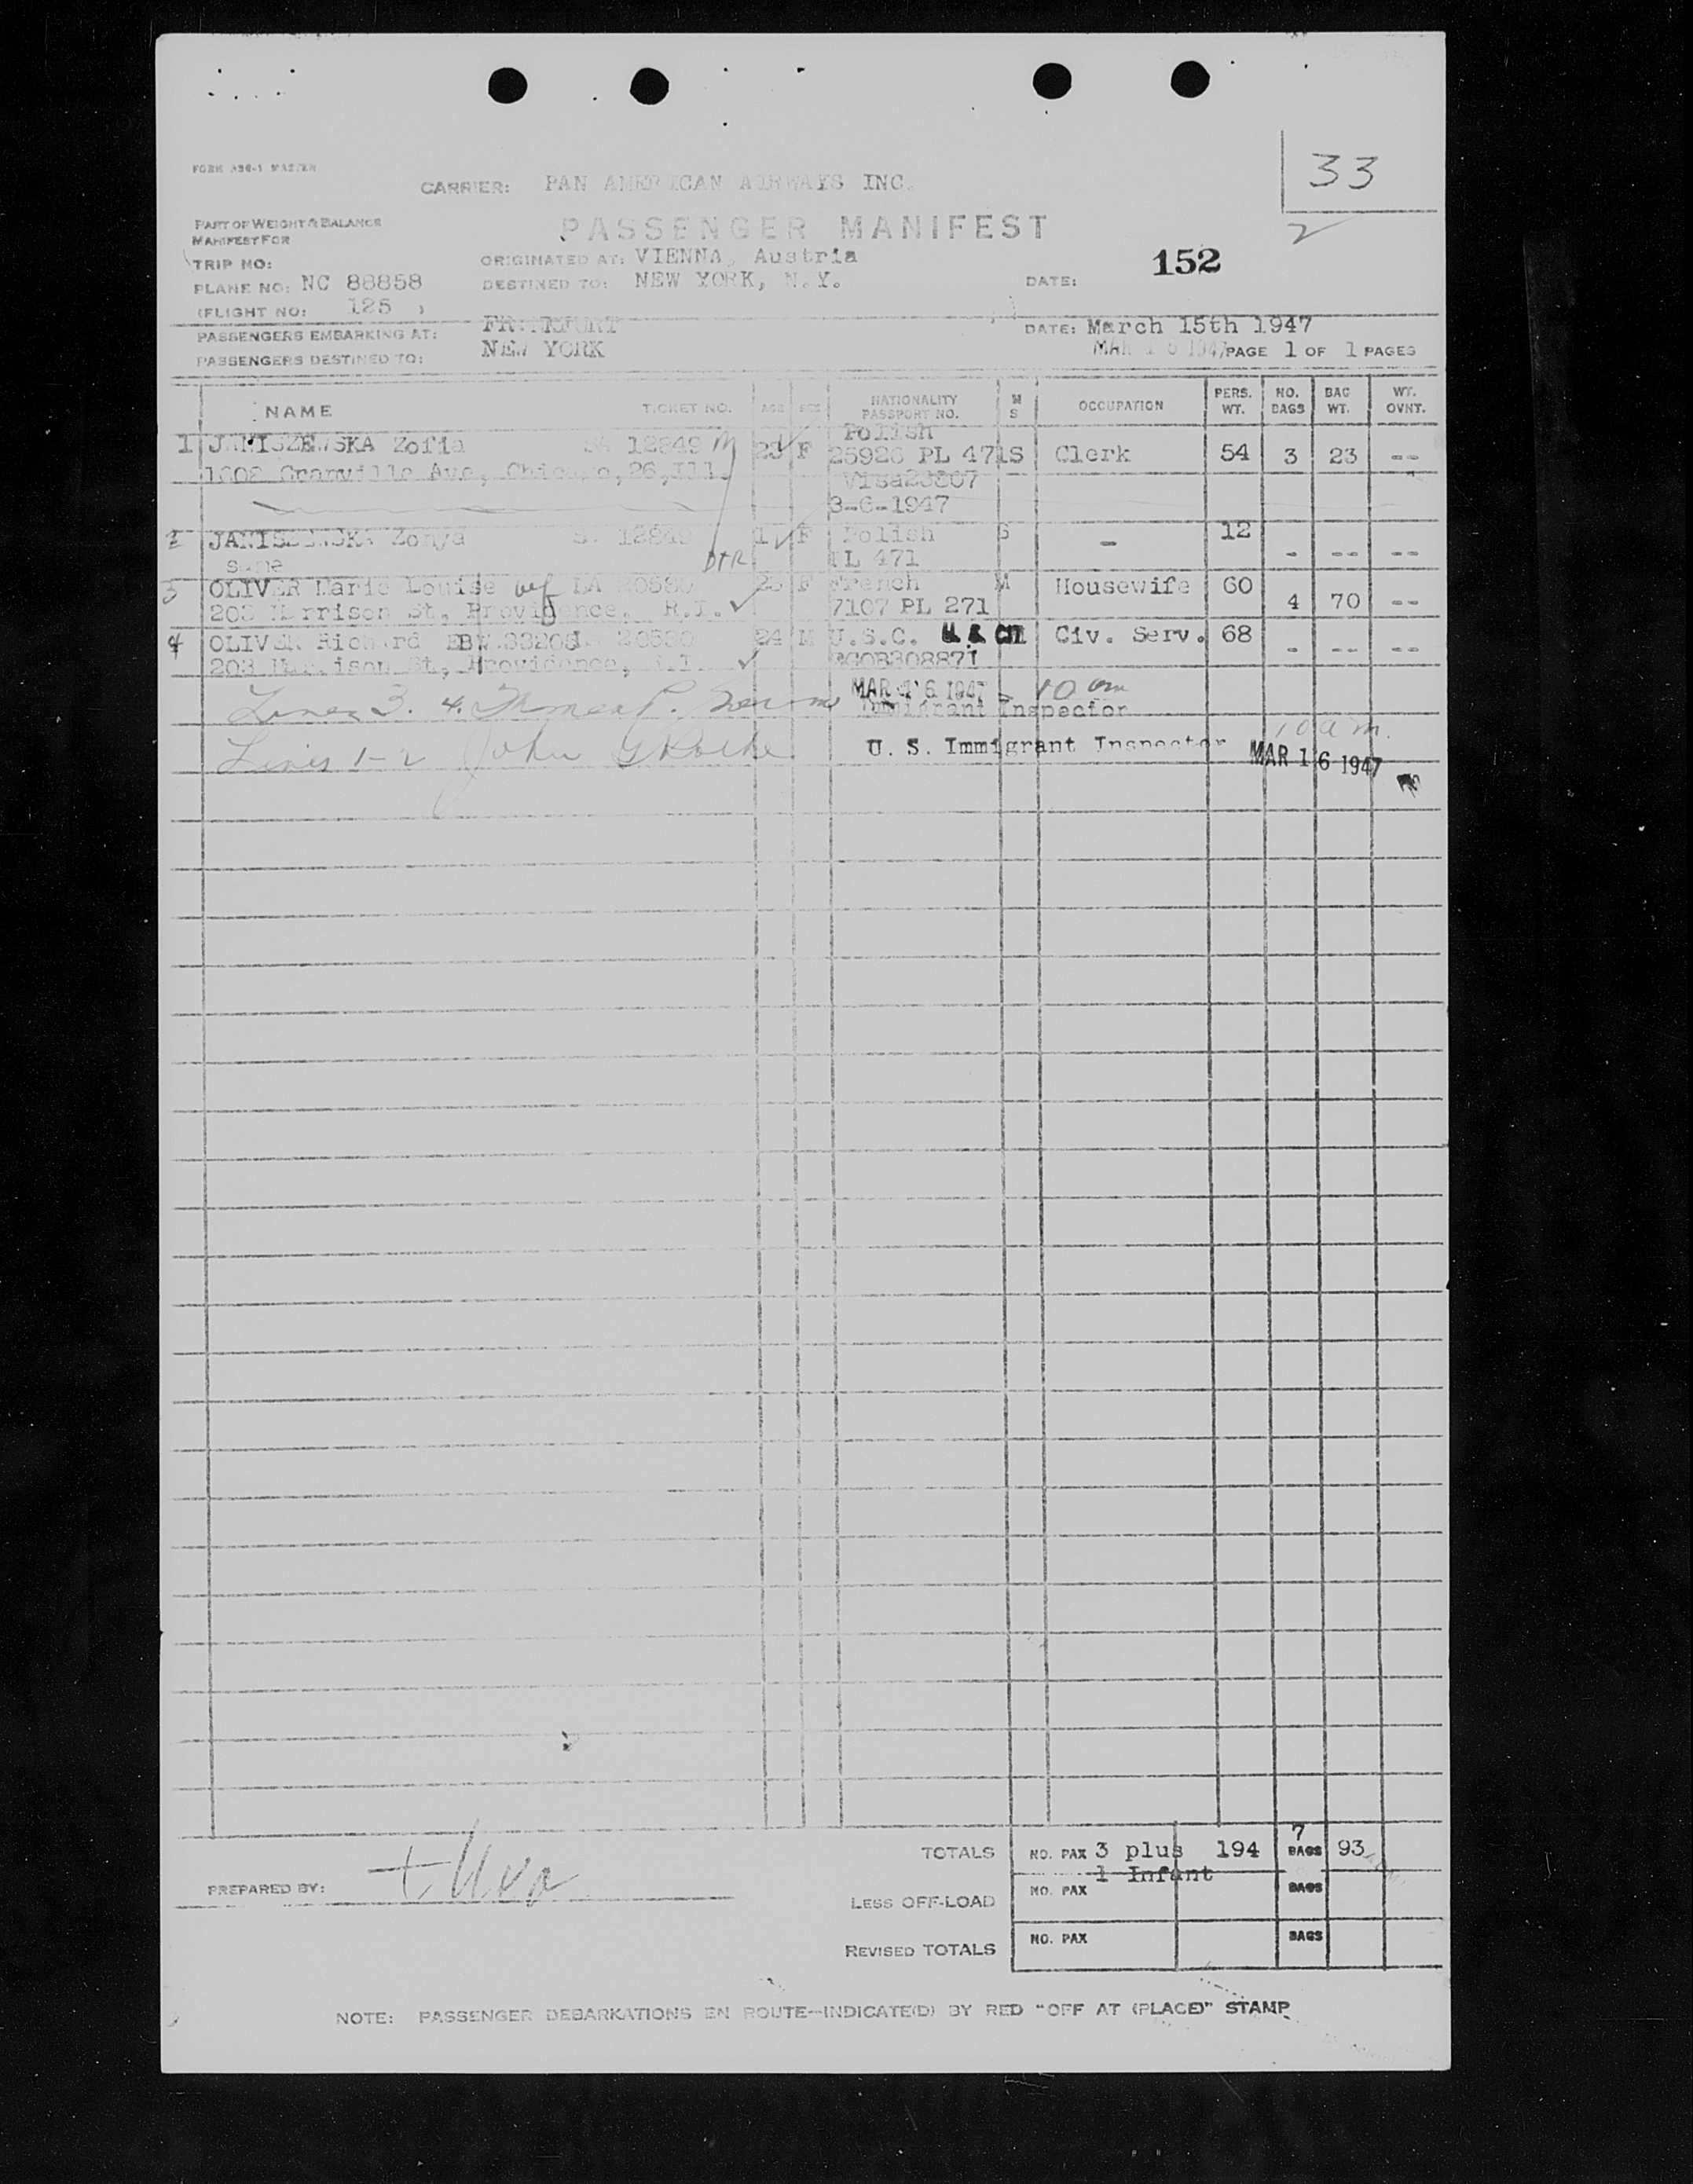 33
FORM
CARRIER: PAN AMERICAN AIRWAYS INC.
PART OF WEIGHT & BALANCE
MANIFEST FOR
PASSENGER MANIFEST
2
TRIP NO:
ORIGINATED AT: VIENNA, Austria
152
PLANE NO: NC 88858
DESTINED TO: NEW YORK, N.Y.
DATE:
(FLIGHT NO: 125 )
PASSENGERS EMBARKING AT: FRANKFURT
DATE: March 15th 1947
PASSENGERS DESTINED TO: NEW YORK
MAR 16 1947 PAGE 1 OF 1 PAGES
NAME TICKET NO. AGE SEX NATIONALITY PASSPORT NO. M S OCCUPATION PERS. WT. NO. BAGS BAG WT. WT. OVNT.
1 JANISZEWSKA Zofia 12849 M F Polish
25926 PL 471 S Clerk 54 3 23 --
1602 Granville Ave, Chicago, 26, Ill.
Visa
3-6-1947
2 JANISZEWSKA Zonya 12849 1 F Polish S - 12 - -- --
same DTR PL 471
3 OLIVER Marie Louise wf F French M Housewife 60
203 Harrison St, Providence, R.I. 7107 PL 271 4 70 --
4 OLIVER Richard 24 M U.S.C. U.S. CIT Civ. Serv. 68 - -- --
203 Harrison St, Providence, R.I.
Lines 3. 4. MAR 16 1947 10 am
Immigrant Inspector
Lines 1-2 John U. S. Immigrant Inspector 10 a m.
MAR 16 1947
TOTALS NO. PAX 3 plus 194 7 BAGS 93
1 Infant
PREPARED BY:
LESS OFF-LOAD NO. PAX BAGS
REVISED TOTALS NO. PAX BAGS
NOTE: PASSENGER DEBARKATIONS EN ROUTE—INDICATE(D) BY RED "OFF AT (PLACE)" STAMP